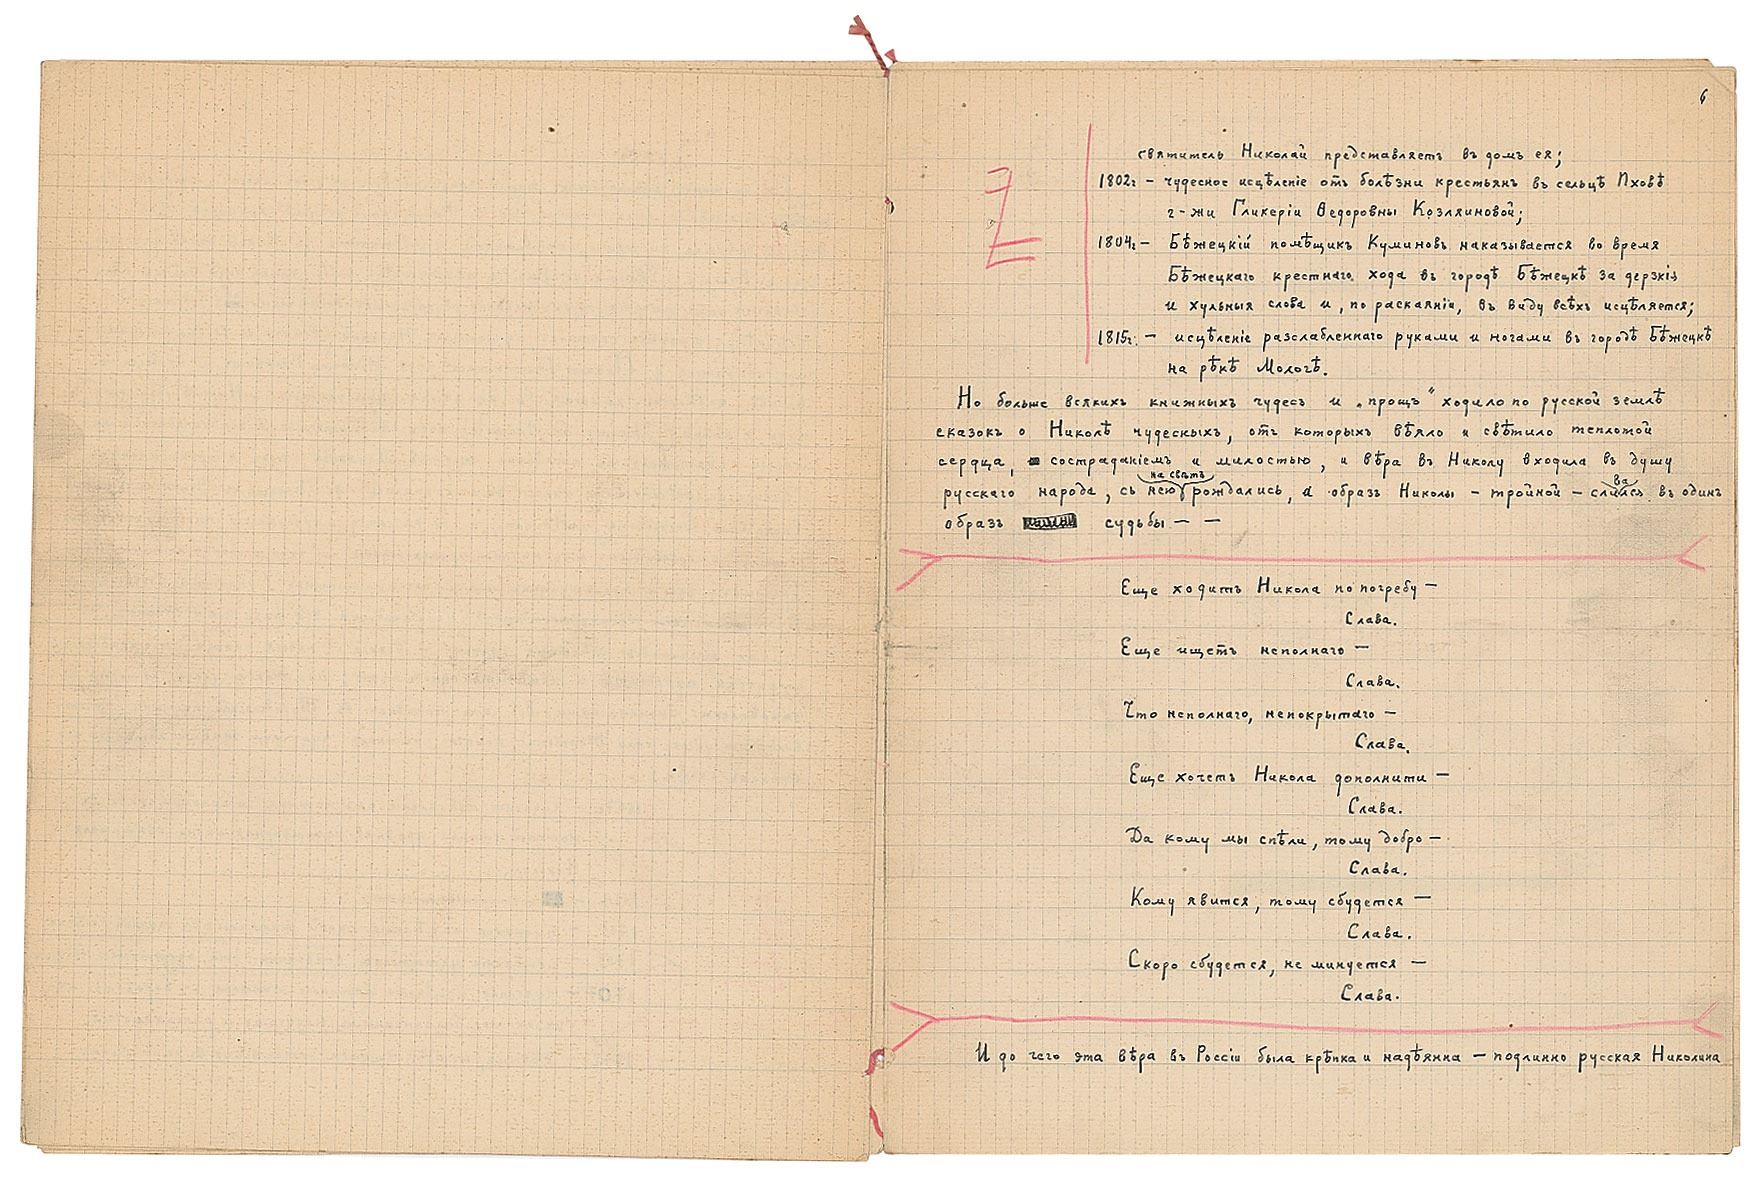 6
святитель Николай представляетъ въ домъ ея;
1802г – чудесное исцѣленіе отъ болѣзни крестьянъ въ сельцѣ Пховѣ
г-жи Гликеріи Ѳедоровны Козляиновой;
1804г – Бѣжецкій помѣщикъ Куминовъ наказывается во время
Бѣжецкаго крестнаго хода въ городѣ Бѣжецкѣ за дерзкія
и хульныя слова и, по раскаяніи, въ виду всѣхъ исцѣляется;
1815г. – исцѣленіе разслабленнаго руками и ногами въ городѣ Бѣжецкѣ
на рѣкѣ Мологѣ.
Но больше всякихъ книжныхъ чудесъ и „прощъ“ ходило по русской землѣ
сказокъ о Николѣ чудесныхъ, отъ которыхъ вѣяло и свѣтило теплотой
сердца, состраданіемъ и милостью, и вѣра въ Николу входила въ душу
на свѣтъ ва
русскаго народа, съ нею рождались, а образъ Николы – тройной – слился въ одинъ
образъ судьбы – –
Еще ходитъ Никола по погребу –
Слава.
Еще ищетъ неполнаго –
Слава.
Что неполнаго, непокрытаго –
Слава.
Еще хочетъ Никола дополнити –
Слава.
Да кому мы спѣли, тому добро –
Слава.
Кому явится, тому сбудется –
Слава.
Скоро сбудется, не минуется –
Слава.
И до чего эта вѣра въ Россіи была крѣпка и надѣянна – подлинно русская Николина